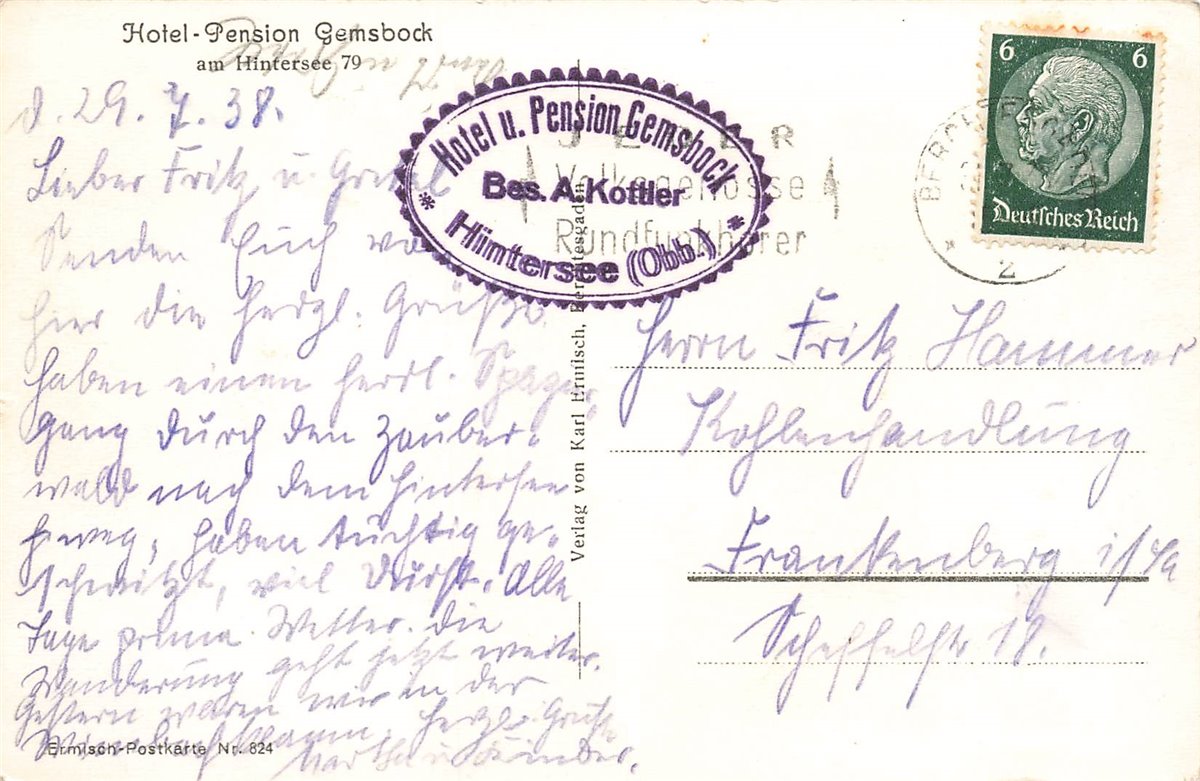 Hotel-Pension Gemsbock
am Hintersee 79
d. 29. 7. 38.
Lieber Fritz u. Gretel
Senden Euch von
hier die herzl. Grüße
haben einen herrl. Spazier
gang durch den Zauber-
wald nach dem Hintersee
haben tüchtig ge-
schwitzt, viel Durst. Alle
Tage prima Wetter. Die
Wanderung geht jetzt weiter.
Gestern waren wir in der
Wimbachklamm. Herzl. Grüße
Martha u. Kinder.
Ermisch-Postkarte Nr. 824
Verlag von Karl Ermisch, Berchtesgaden
Hotel u. Pension Gemsbock
Bes. A. Kottler
* Hintersee (Obb.) *
JEDER
Volksgenosse
Rundfunkhörer
BERCHTESGADEN
2
6 6
Deutsches Reich
Herrn Fritz Hammer
Kohlenhandlung
Frankenberg i/Sa
Scheffelstr 18.